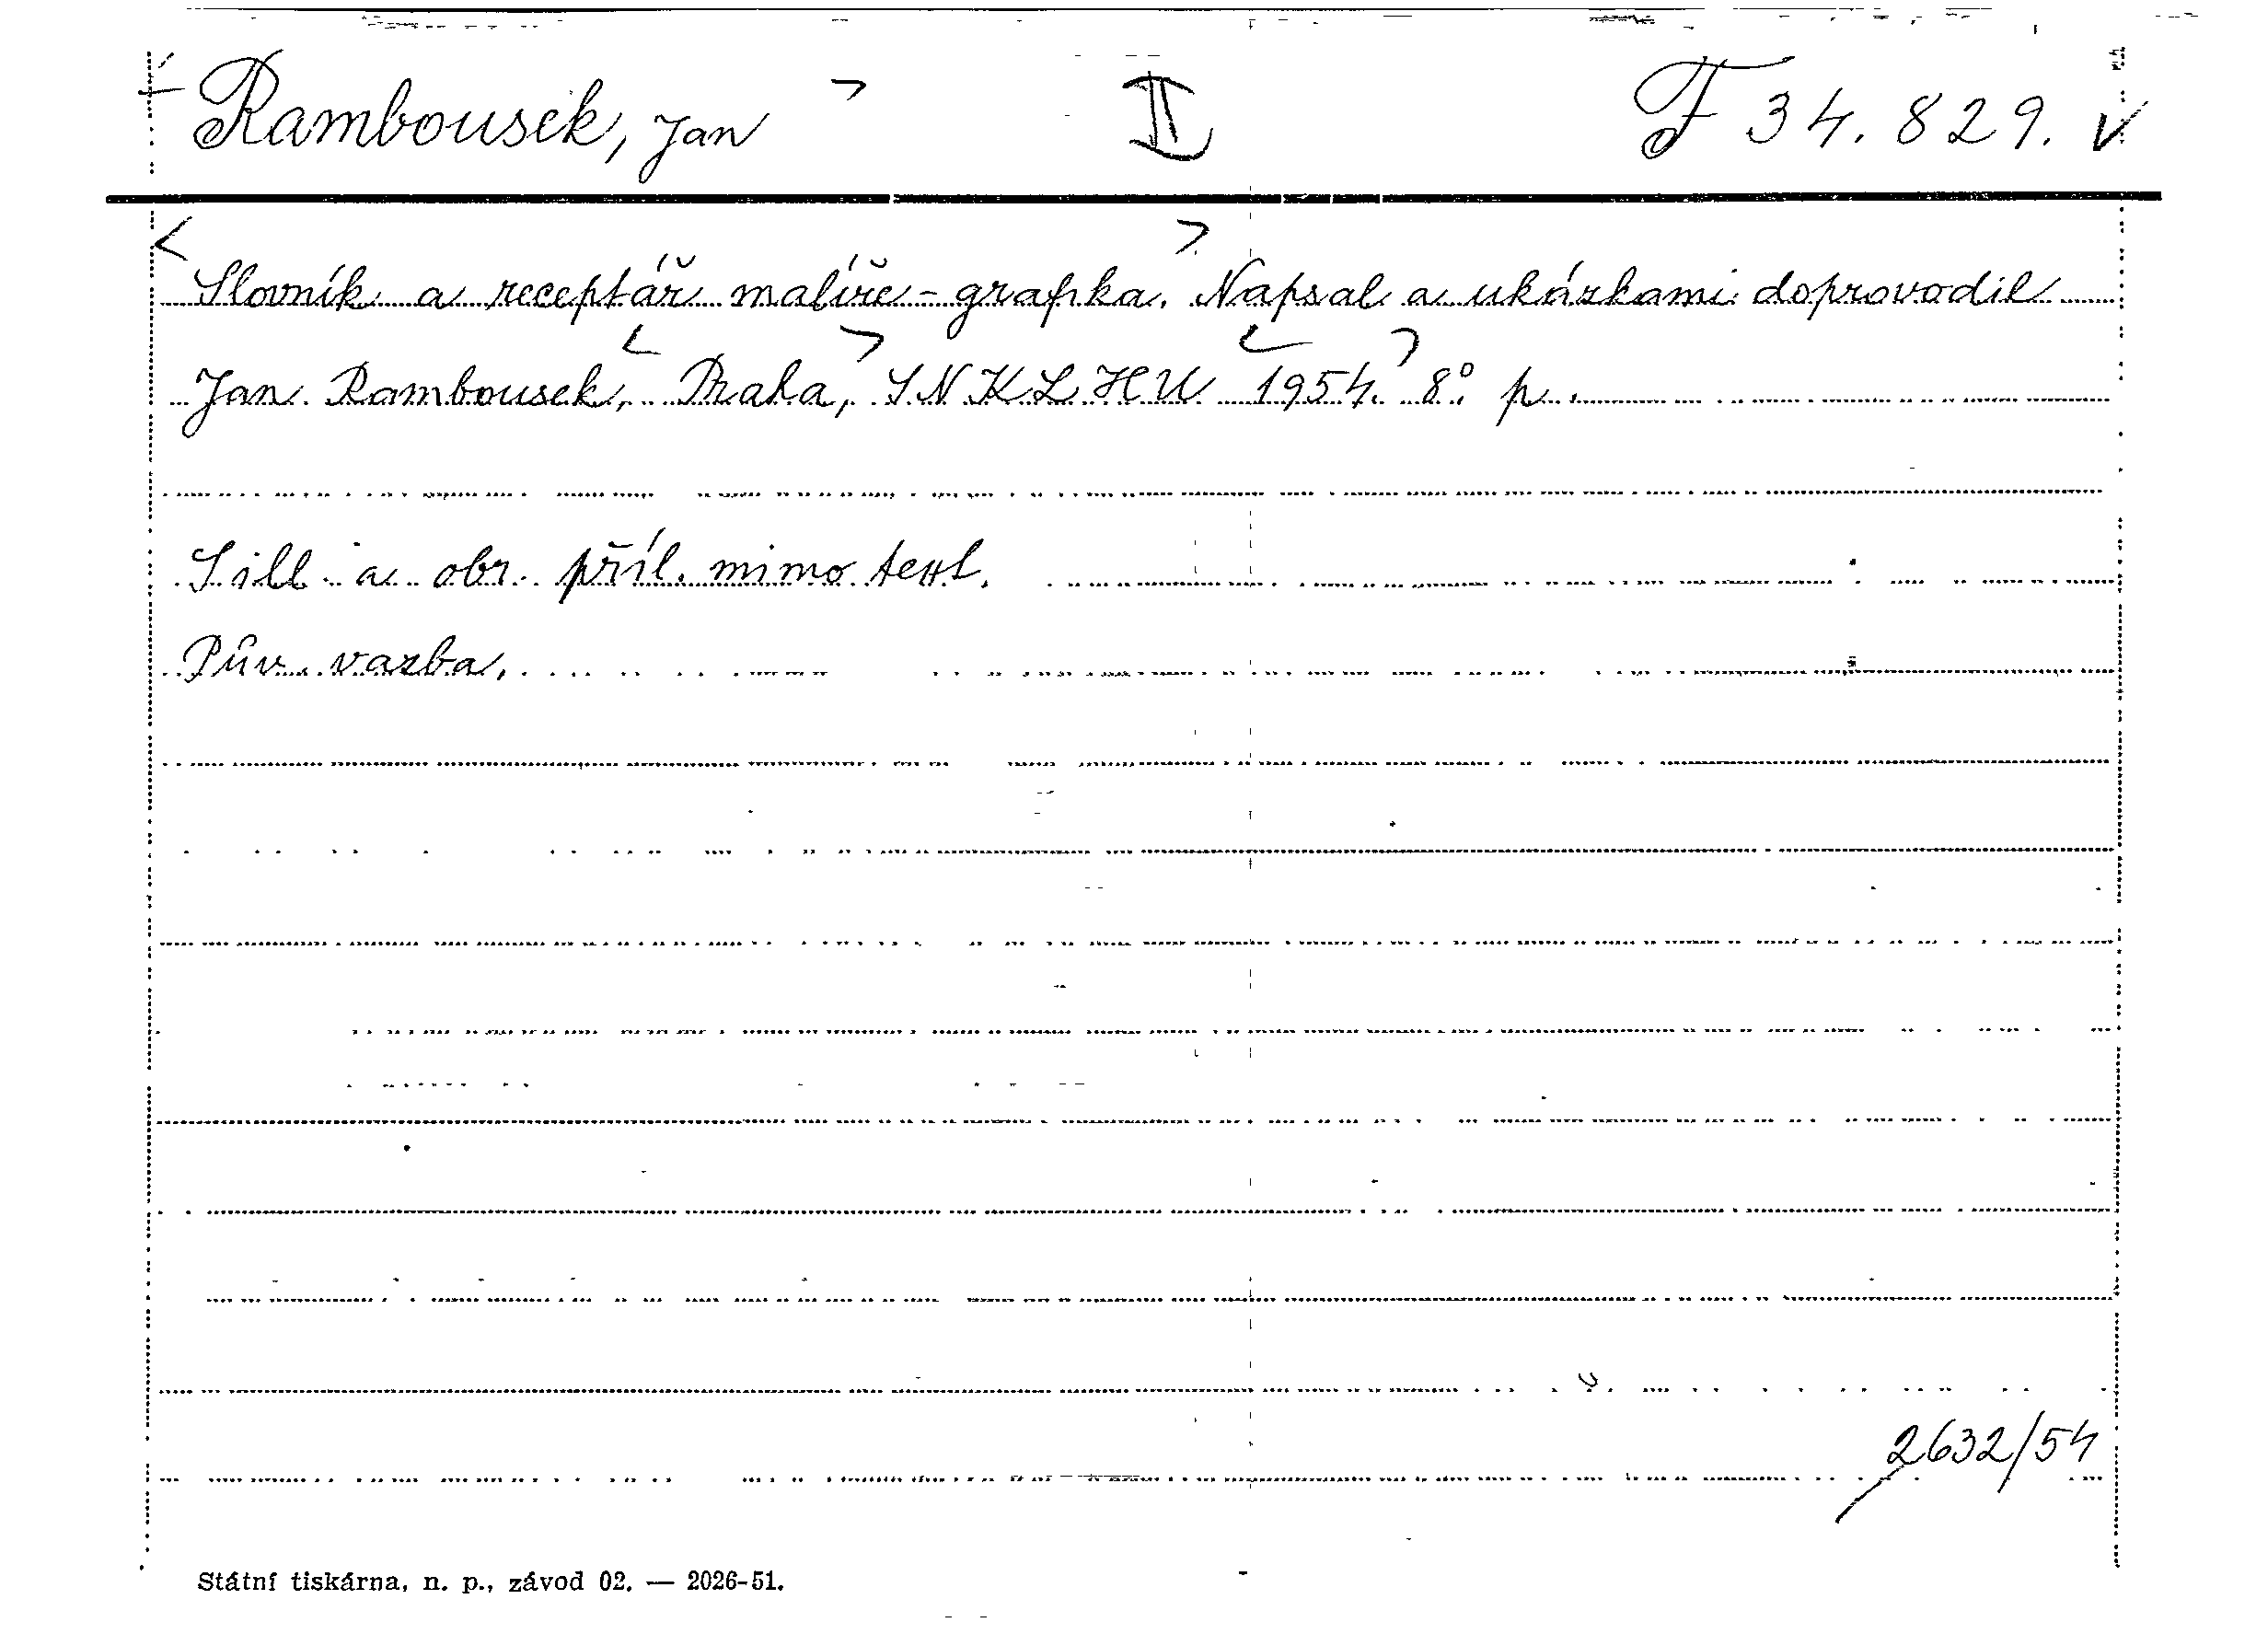 Rambousek, Jan II F 34.829. v
Slovník a receptář malíře-grafika. Napsal a ukázkami doprovodil
Jan Rambousek, Praha, SNKLHU 1954. 8° p.
S ill. a obr. příl. mimo text.
Pův. vazba.
2632/54
Státní tiskárna, n. p., závod 02. — 2026-51.